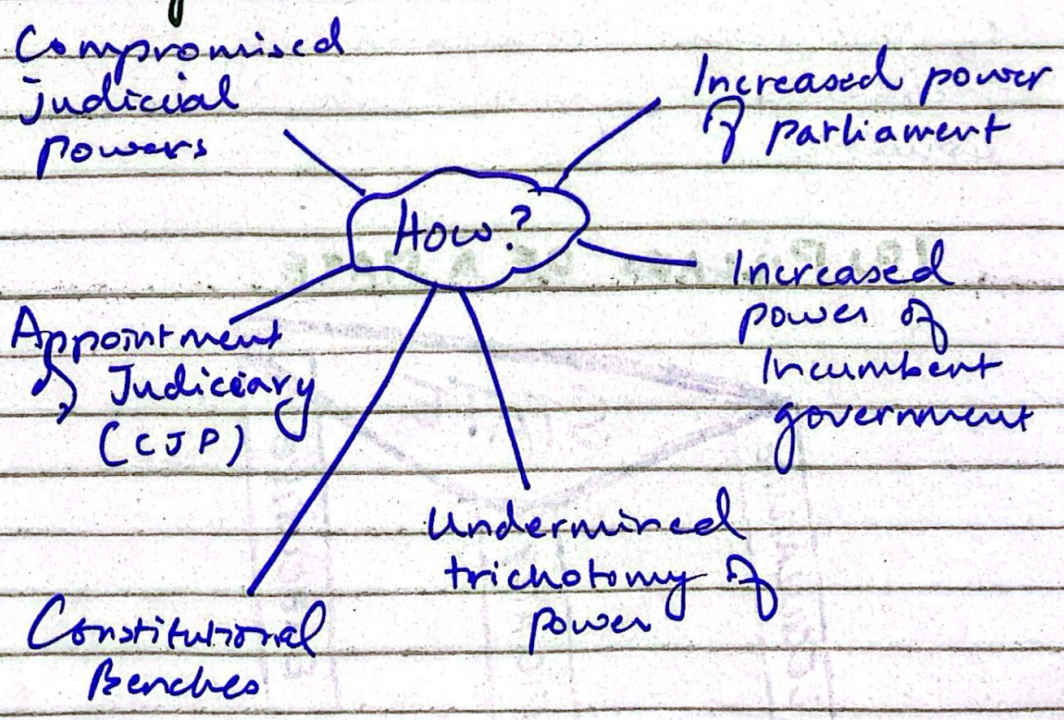 Compromised
judicial
powers
Increased power
of parliament
How?
Increased
power of
Incumbent
government
Appointment
of Judiciary
(CJP)
Undermined
trichotomy of
power
Constitutional
Benches